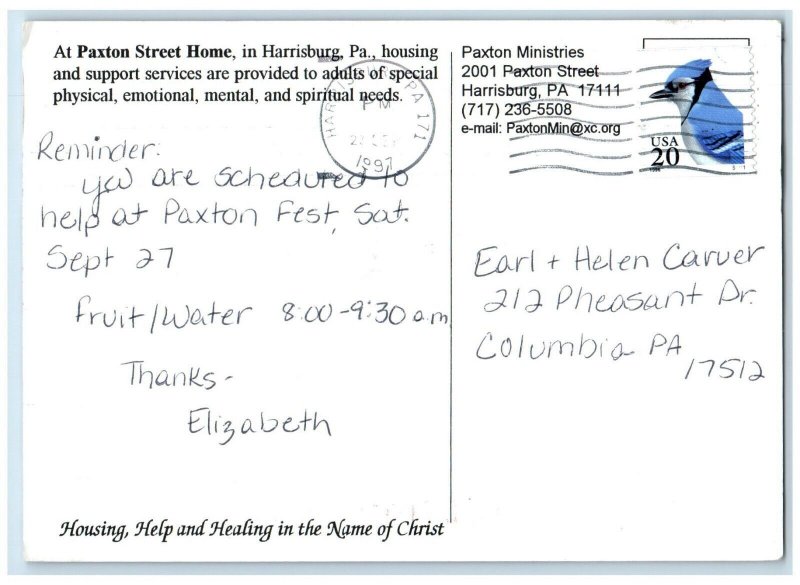 At Paxton Street Home, in Harrisburg, Pa., housing
and support services are provided to adults of special
physical, emotional, mental, and spiritual needs.
Reminder:
you are scheduled to
help at Paxton Fest, Sat.
Sept 27
fruit/water 8:00-9:30 a.m.
Thanks-
Elizabeth
Housing, Help and Healing in the Name of Christ
Paxton Ministries
2001 Paxton Street
Harrisburg, PA 17111
(717) 236-5508
e-mail: PaxtonMin@xc.org
HARRISBURG PA 171
PM
1997
USA
20
Earl + Helen Carver
212 Pheasant Dr.
Columbia PA
17512